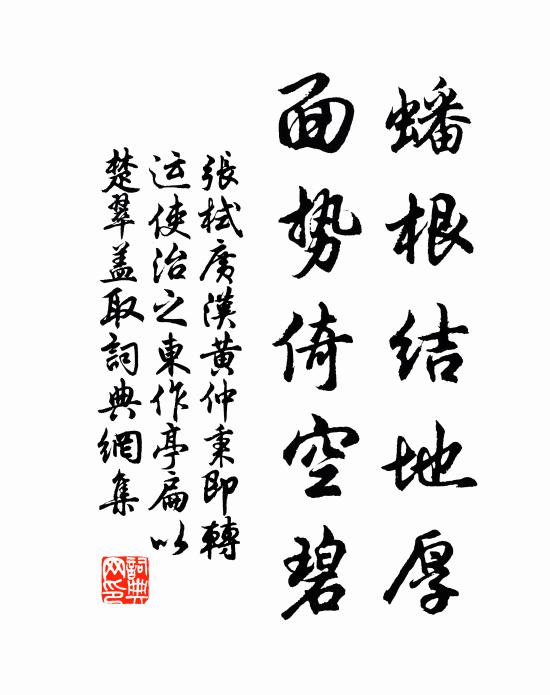 蟠根结地厚
面势倚空碧
張栻廣漢黄仲秉即轉
运使治之東作亭扁以
楚翠盖取詞典網集
詞典网印